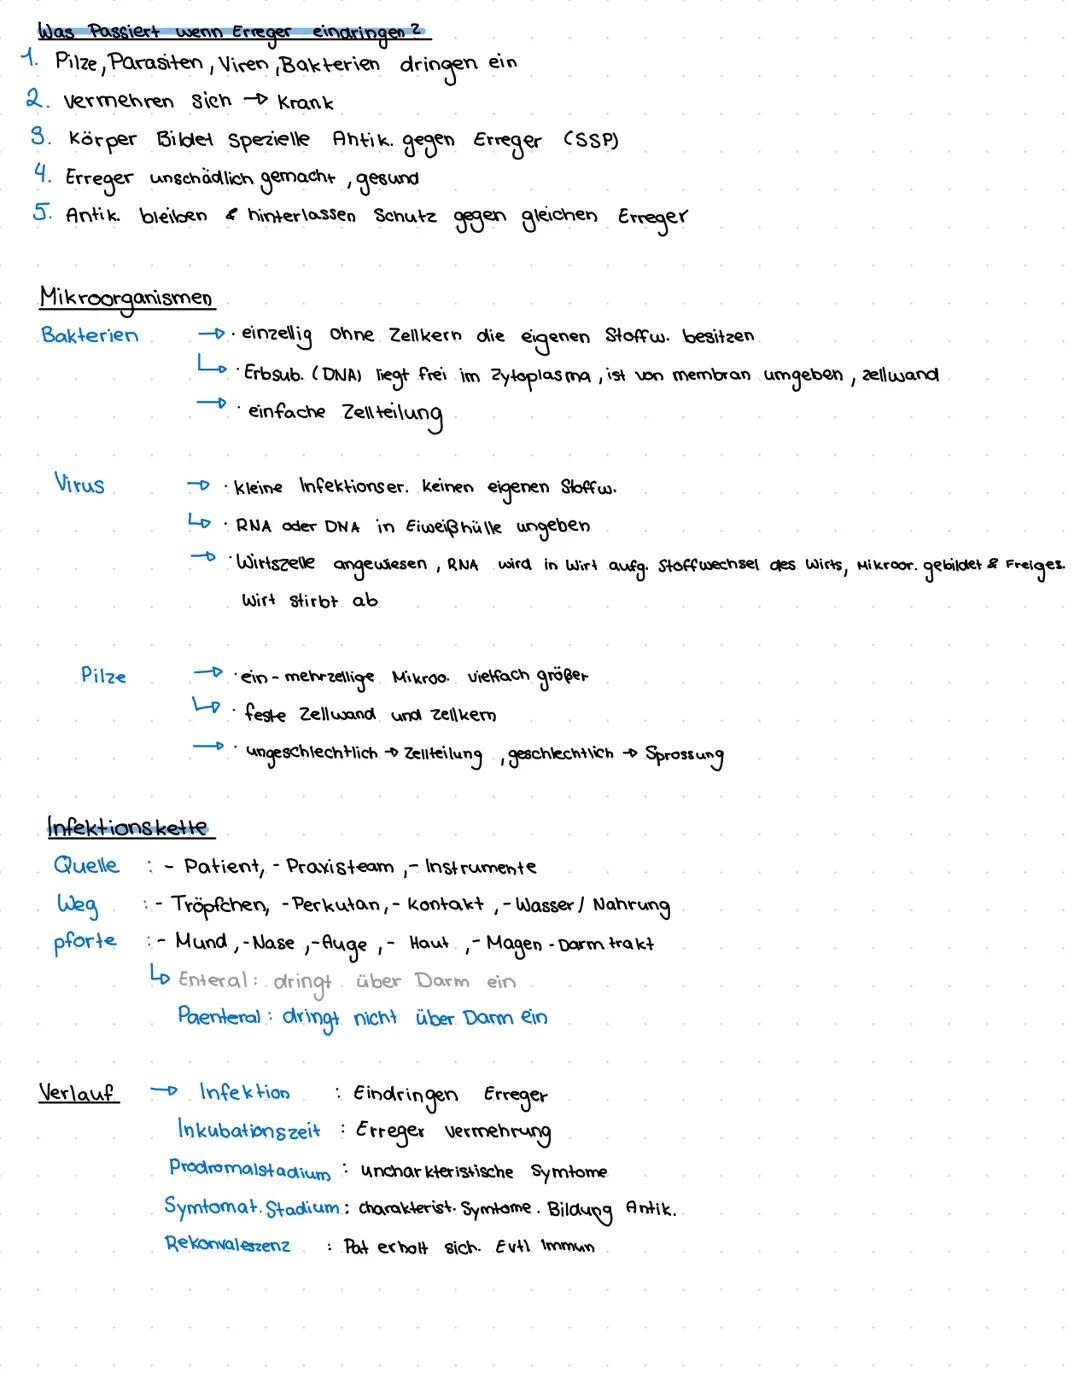 Was Passiert wenn Erreger eindringen?
1. Pilze, Parasiten, Viren, Bakterien dringen ein
2. vermehren sich → Krank
3. Körper Bildet Spezielle Antik. gegen Erreger (SSP)
4. Erreger unschädlich gemacht, gesund
5. Antik. bleiben & hinterlassen Schutz gegen gleichen Erreger
Mikroorganismen
Bakterien → · einzellig ohne Zellkern die eigenen Stoffw. besitzen
↳ · Erbsub. (DNA) liegt frei im Zytoplasma, ist von membran umgeben, zellwand
→ · einfache Zellteilung
Virus → · kleine Infektionser. keinen eigenen Stoffw.
↳ · RNA oder DNA in Eiweißhülle ungeben
→ · Wirtszelle angewiesen, RNA wird in Wirt aufg. Stoffwechsel des Wirts, Mikroor. gebildet & Freiges.
Wirt stirbt ab
Pilze → · ein- mehrzellige Mikroo. vielfach größer
↳ · feste Zellwand und Zellkern
→ · ungeschlechtlich → Zellteilung, geschlechtlich → Sprossung
Infektionskette
Quelle : - Patient, - Praxisteam, - Instrumente
Weg : - Tröpfchen, - Perkutan, - Kontakt, - Wasser / Nahrung
pforte : - Mund, - Nase, - Auge, - Haut, - Magen - Darmtrakt
↳ Enteral: dringt über Darm ein
Paenteral: dringt nicht über Darm ein
Verlauf → Infektion : Eindringen Erreger
Inkubationszeit : Erreger vermehrung
Prodromalstadium : uncharkteristische Symtome
Symtomat. Stadium : charakterist. Symtome. Bildung Antik.
Rekonvaleszenz : Pat erholt sich. Evtl Immun